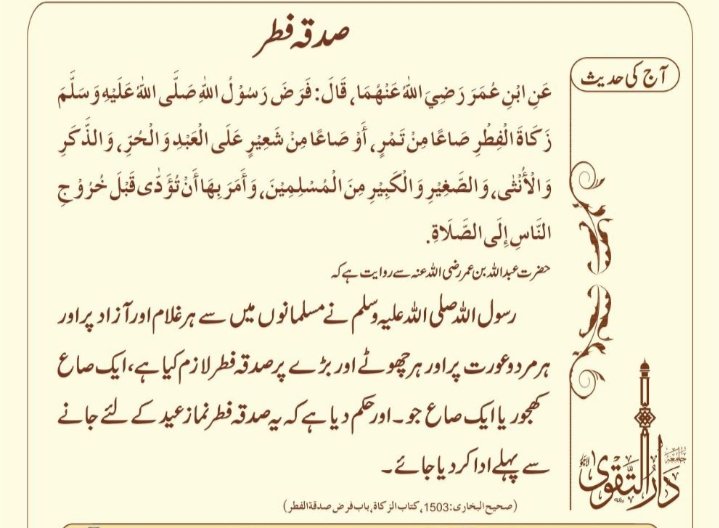 صدقہ فطر
آج کی حدیث
عَنِ ابْنِ عُمَرَ رَضِيَ اللهُ عَنْهُمَا، قَالَ: فَرَضَ رَسُوْلُ اللهِ صَلَّى اللهُ عَلَيْهِ وَسَلَّمَ
زَكَاةَ الْفِطْرِ صَاعًا مِنْ تَمْرٍ، أَوْ صَاعًا مِنْ شَعِيْرٍ عَلَى الْعَبْدِ وَالْحُرِّ، وَالذَّكَرِ
وَالْأُنْثٰى، وَالصَّغِيْرِ وَالْكَبِيْرِ مِنَ الْمُسْلِمِيْنَ، وَأَمَرَ بِهَا أَنْ تُؤَدّٰى قَبْلَ خُرُوْجِ
النَّاسِ إِلَى الصَّلَاةِ.
حضرت عبداللہ بن عمر رضی اللہ عنہ سے روایت ہے کہ
رسول اللہ صلی اللہ علیہ وسلم نے مسلمانوں میں سے ہر غلام اور آزاد پر اور
ہر مرد و عورت پر اور ہر چھوٹے اور بڑے پر صدقہ فطر لازم کیا ہے، ایک صاع
کھجور یا ایک صاع جو۔ اور حکم دیا ہے کہ یہ صدقہ فطر نماز عید کے لئے جانے
سے پہلے ادا کر دیا جائے۔
(صحیح البخاری:1503، کتاب الزکاۃ، باب فرض صدقۃ الفطر)
دار التقویٰ